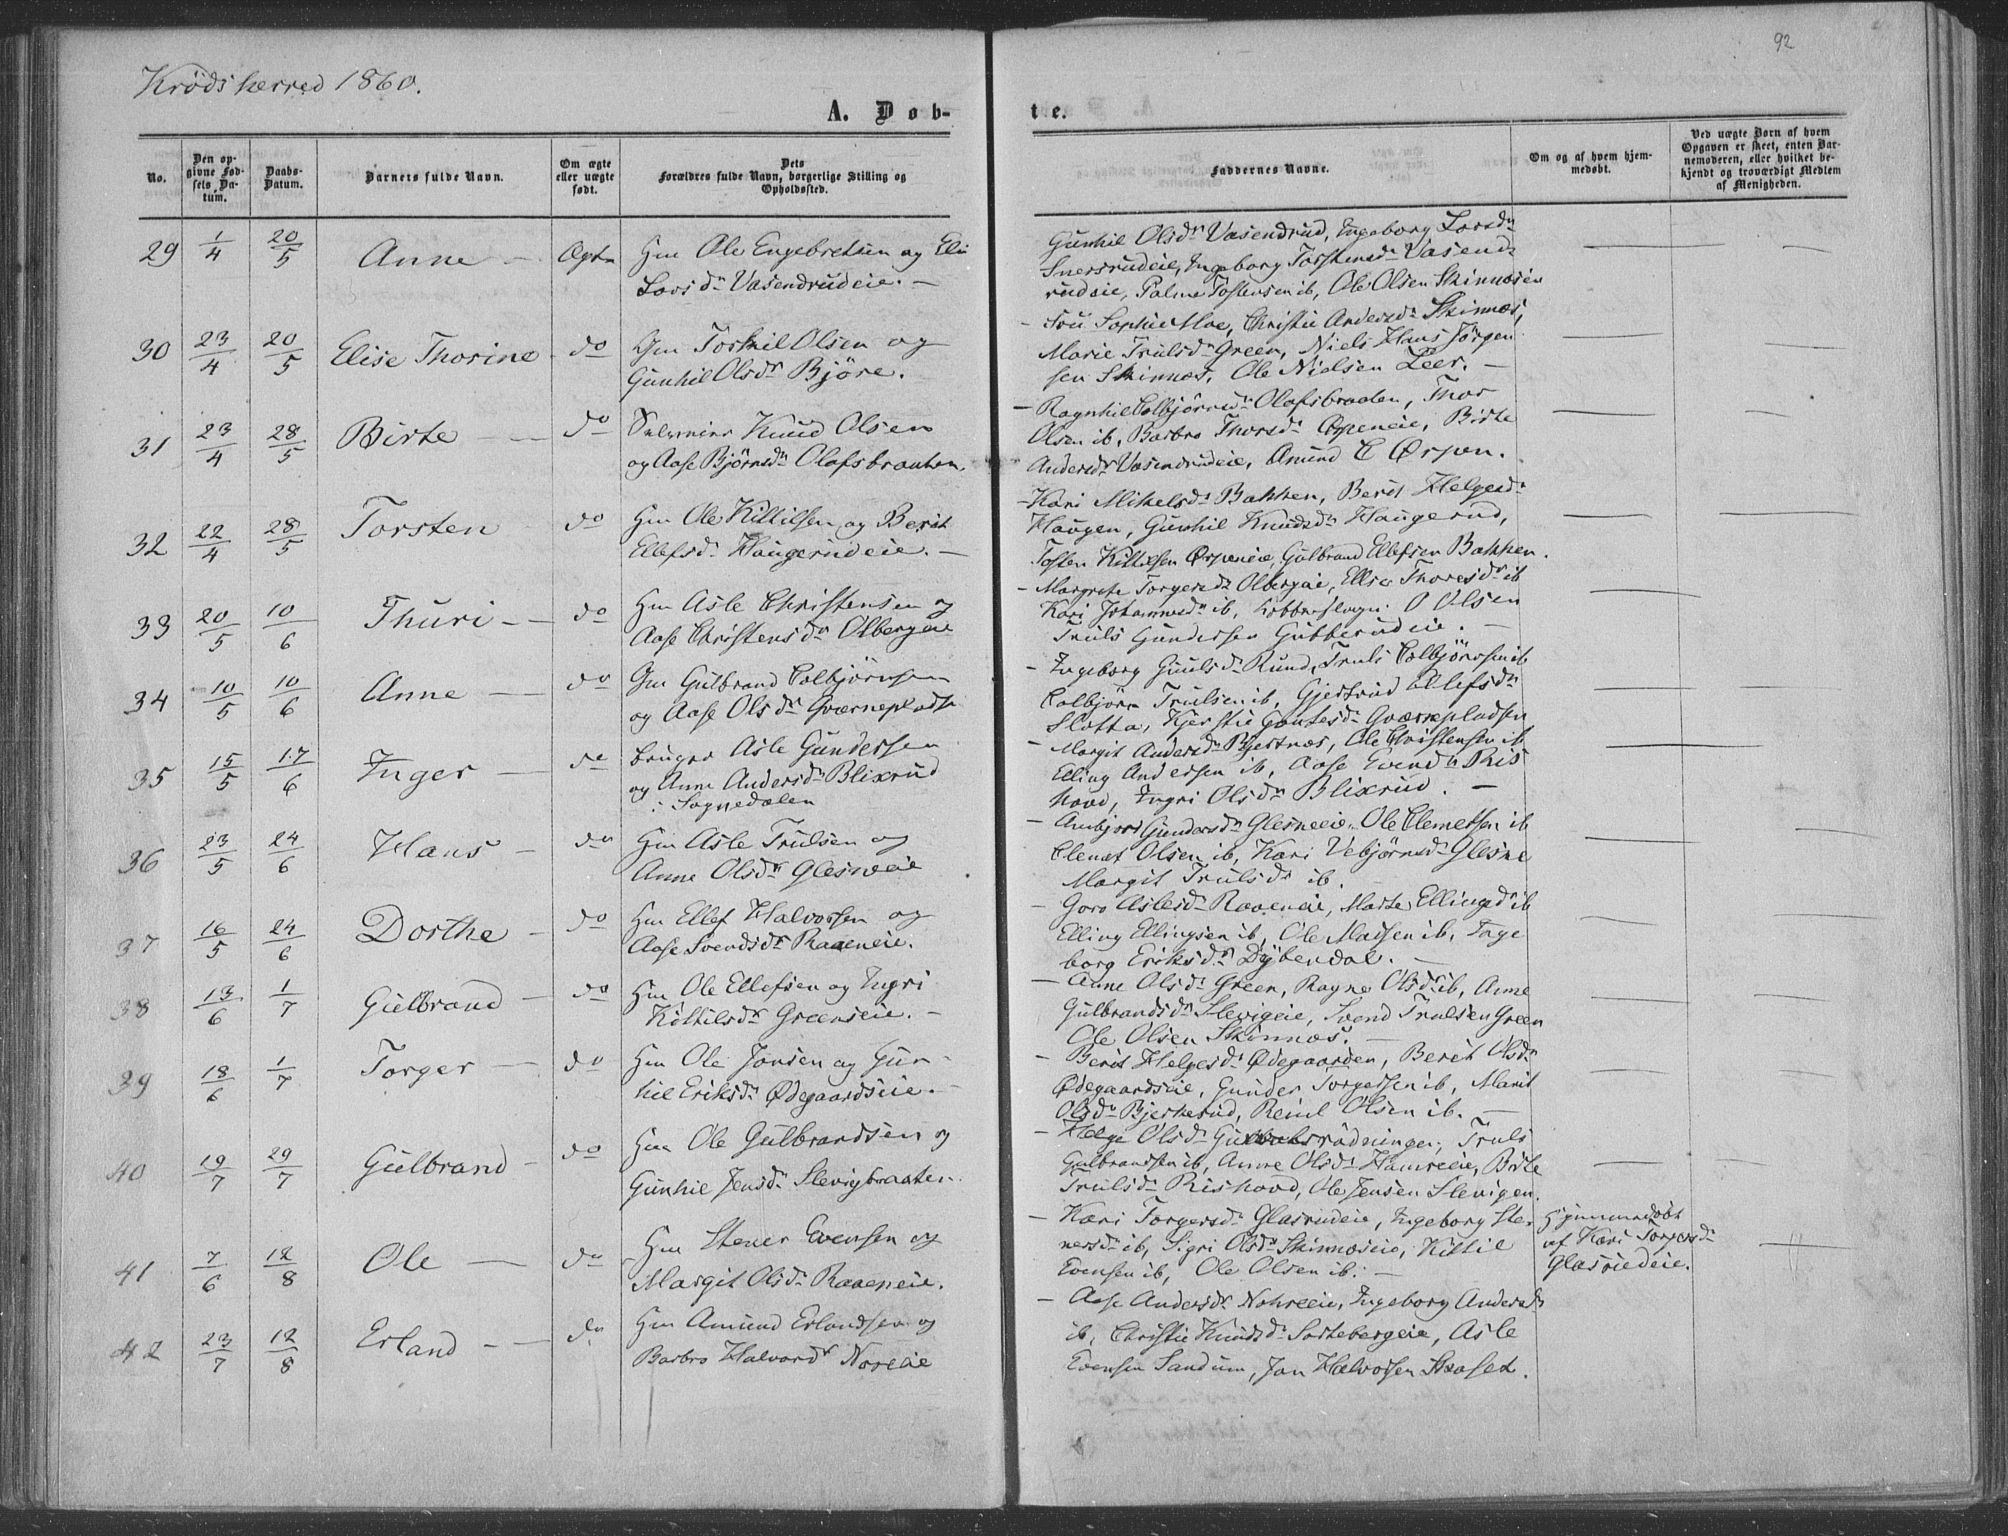 92
Krødsherred 1860.
A. Døb-
te.
No.
Den op-
givne Fød-
sels Da-
tum.
Daabs-
Datum.
Barnets fulde Navn.
Om ægte
eller uægte
født.
Dets
Forældres fulde Navn, borgerlige Stilling og
Opholdssted.
Faddernes Navne.
Om og af hvem hjem-
medøbt.
Ved uægte Børn af hvem
Opgaven er skeet, enten Bar-
nemoderen, eller hvilket be-
kjendt og troværdigt Medlem
af Menigheden.
29 1/4 20/5 Anne Ægte Hm Ole Engebretsen og Eli
Larsdr Vasendrudeie.
Gunhil Olsdr Vasendrud, Ingeborg Larsdr
Snersrudeie, Ingeborg Torstensdr Vasend-
rudeie, Palme Tostensen ib, Ole Olsen Skinnæseie
30 23/4 20/5 Elise Thorine do Gm Torkil Olsen og
Gunhil Olsdr Björe.
Fru Sophie Moe, Christie Andersdr Skinnæs,
Marie Trulsdr Green, Niels Hans Jörgen
sen Skinnæs, Ole Nielsen Leer.
31 23/4 28/5 Birte do Knud Olsen
og Aase Bjørnsdr Olafsbraaten.
Ragnhil Colbjörnsdr Olafsbraaten, Thor
Olsen ib, Barbro Thorsdr Ørpeneie, Birte
Andersdr Vasendrudeie, Amund E Ørpen.
32 22/4 28/5 Torsten do Hm Ole Kittilsen og Berit
Ellefsdr Haugerudeie.
Kari Mikelsdr Bakken, Berit Helgesdr
Haugen, Gunhil Knudsdr Haugerud,
Tosten Kittilsen Ørpeneie, Gulbrand Ellefsen Bakken.
33 20/5 10/6 Thuri do Hm Asle Christensen og
Aase Christensdr Olbergeie
Margrete Torgersdr Olbergeie, Thoresdr ib
Kari Johannesdr ib, O Olsen
Truls Gundersen Gubberudeie.
34 10/5 10/6 Anne do Gm Gulbrand Colbjörnsen
og Aase Olsdr Qværnepladsn
Ingeborg Guulsdr Ruud, Truls Colbjörnsen ib
Colbjörn Trulsen ib, Gjertrud Ellefsdr
Slotta, Kjerstie Gautesdr Qværnepladsen
35 15/5 17/6 Inger do bruger Asle Gundersen
og Anne Andersdr Blixrud
i Sognedalen
Margit Andersdr Bjertnæs, Ole Christensen ib
Elling Andersen ib, Aase Evendr Ris
hovd, Ingri Olsdr Blixrud.
36 23/5 24/6 Hans do Hm Asle Trulsen og
Anne Olsdr Glesneeie
Ambjor Gundersdr Glesneeie, Ole Clemetsen ib
Clemet Olsen ib, Kari Vebjörnsdr Glesne
Margit Trulsdr ib.
37 16/5 24/6 Dorthe do Hm Ellef Halvorsen og
Aase Svendsdr Raaeneie.
Goro Aslesdr Raaeneie, Marte Ellingsd ib
Elling Ellingsen ib, Ole Madsen ib, Inge
borg Eriksdr Dybendal.
38 13/6 1/7 Gulbrand do Hm Ole Ellefsen og Ingri
Kittilsdr Greenseie.
Anne Olsdr Green, Ragne Olsdr ib, Anne
Gulbrandsdr Slevigeie, Svend Trulsen Green
Ole Olsen Skinnæs.
39 18/6 1/7 Torger do Hm Ole Jonsen og Gun-
hil Eriksdr Ødegaardseie.
Berit Helgesdr Ødegaarden, Berit Olsdr
Ødegaardseie, Gunder Torgersen ib, Marit
Olsdr Bjerkerud, Reiul Olsen ib.
40 19/7 29/7 Gulbrand do Hm Ole Gulbrandsen og
Gunhil Jensdr Slevigbraaten.
Helge Olsdr rødningen, Truls
Gulbrandsen ib, Anne Olsdr Hamreeie, Birte
Trulsdr Rishovd, Ole Jensen Slevigen.
41 7/6 12/8 Ole do Hm Stener Evensen og
Margit Olsdr Raaeneie.
Kari Torgersdr Glasrudeie, Ingeborg Ste
nersdr ib, Sigri Olsdr Skinnæseie, Kittil
Evensen ib, Ole Olsen ib.
Hjemmedøbt
af Kari Torgersdr
Glasrudeie.
42 23/7 12/8 Erland do Hm Amund Erlandsen og
Barbro Halvordr Noreeie
Aase Andersdr Nohreeie, Ingeborg Andersdr
ib, Christie Knudsdr Sortebergeie, Asle
Evensen Sandum, Jon Halvorsen Skaset.